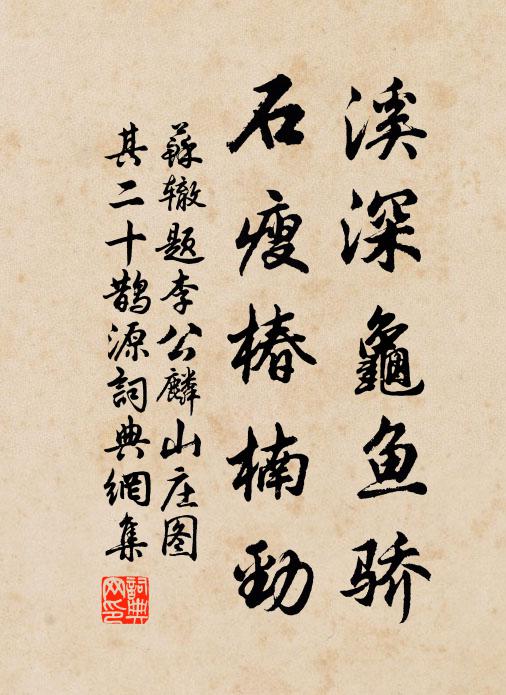 溪深龜鱼骄
石瘦椿楠勁
蘇辙题李公麟山庄图
其二十鹊源詞典網集
詞典網印